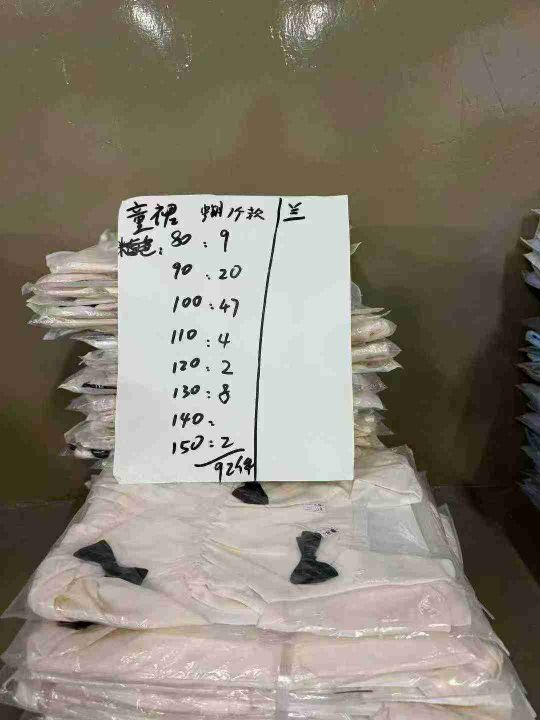 童裙 蝴仔款
粉色: 80: 9
90: 20
100: 47
110: 4
120: 2
130: 8
140:
150: 2
92件
兰